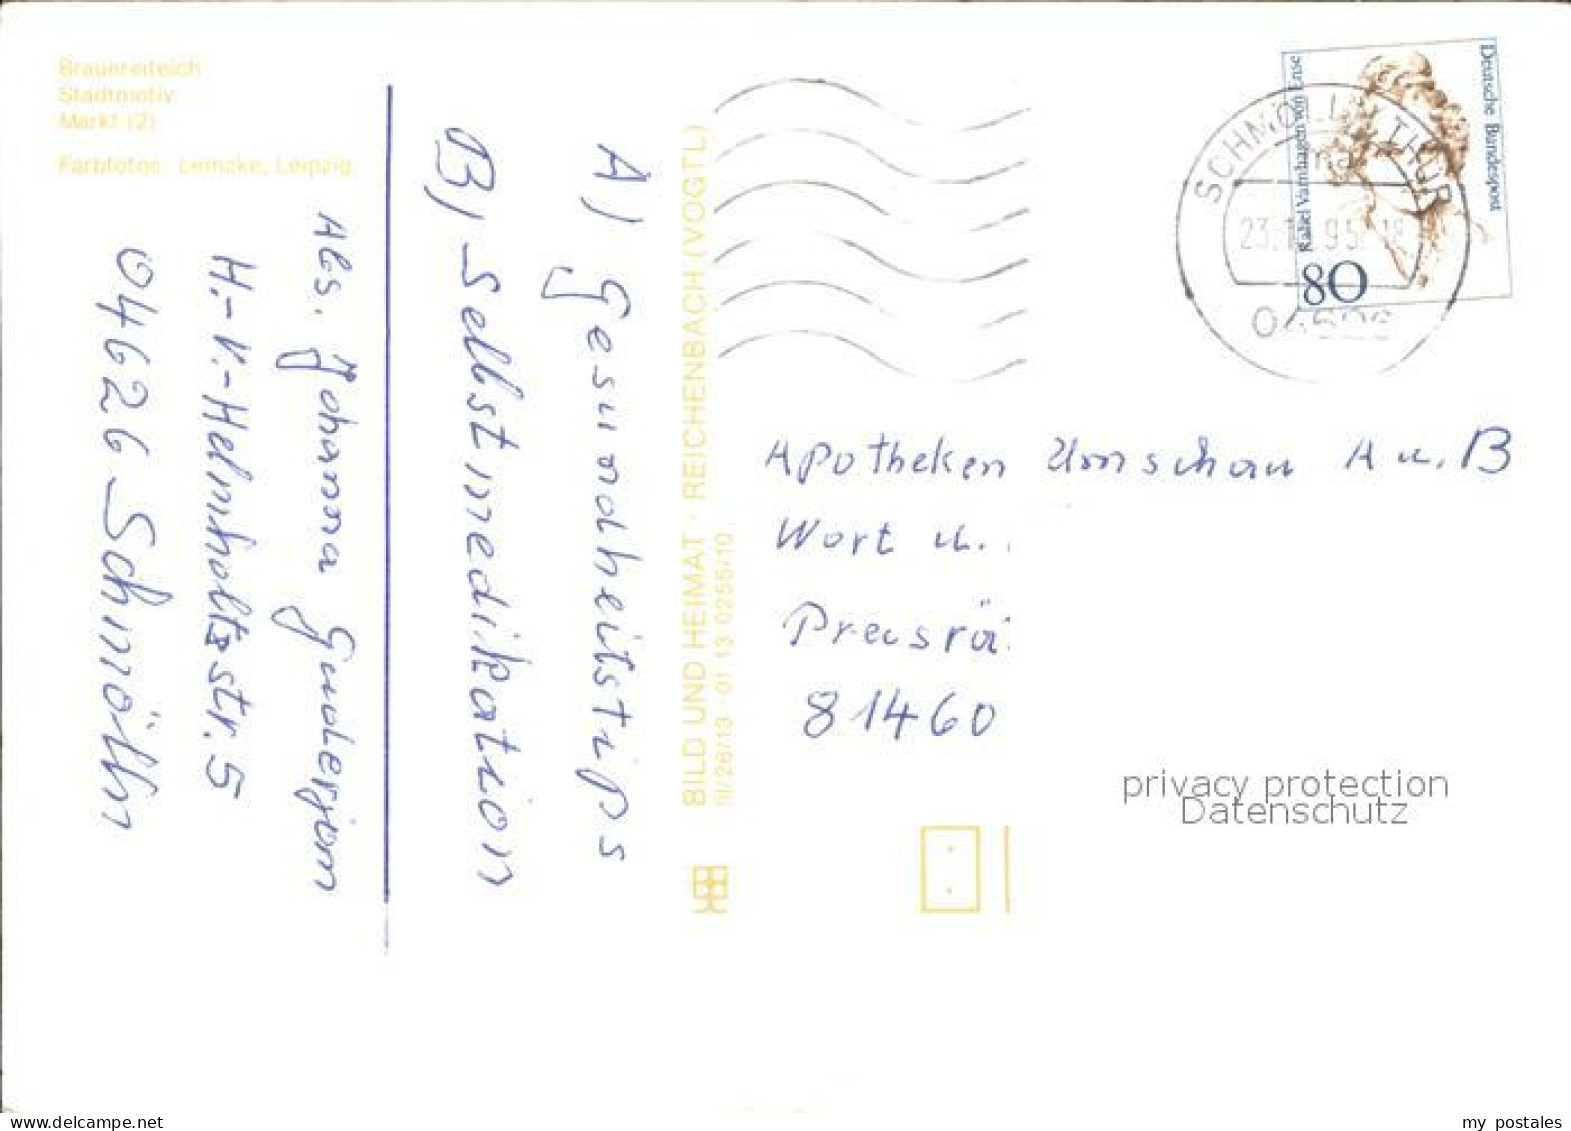 Brauereiteich
Stadtmotiv
Markt (2)
Farbfotos: Lemcke, Leipzig
A) Gesundheitstips
B) Selbstmedikation
Abs. Johanna
H.-v.-Helmholtzstr. 5
04626 Schmölln
BILD UND HEIMAT · REICHENBACH (VOGTL)
III/26/13 · 01 13 0255/10
Deutsche Bundespost
Rahel Varnhagen von Ense
80
SCHMÖLLN, THÜR
23. 95
Apotheken Umschau A u. B
Wort u.
Preusrä
81460
privacy protection
Datenschutz
my postales